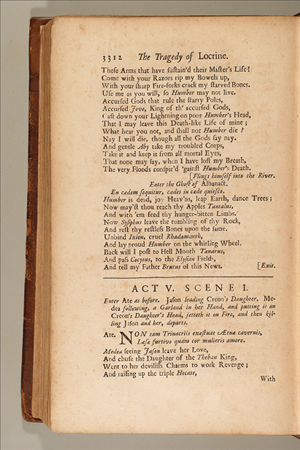 3312 The Tragedy of Locrine.
Those Arms that have sustain'd their Master's Life!
Come with your Razors rip my Bowels up,
With your sharp Fire-forks crack my starved Bones.
Use me as you will, so Humber may not live.
Accursed Gods that rule the starry Poles,
Accursed Jove, King of th' accursed Gods,
Cast down your Lightning on poor Humber's Head,
That I may leave this Death-like Life of mine;
What hear you not, and shall not Humber die?
Nay I will die, though all the Gods say nay.
And gentle Aby take my troubled Corps,
Take it and keep it from all mortal Eyes,
That none may say, when I have lost my Breath,
The very Floods conspir'd 'gainst Humber's Death.
[Flings himself into the River.
Enter the Ghost of Albanact.
En cædem sequitur, cædes in cæde quiesco.
Humber is dead, joy Heav'ns, leap Earth, dance Trees;
Now may'st thou reach thy Apples Tantalus,
And with 'em feed thy hunger-bitten Limbs.
Now Sysiphus leave the tumbling of thy Rock,
And rest thy restless Bones upon the same.
Unbind Ixion, cruel Rhadamanth,
And lay proud Humber on the whirling Wheel.
Back will I post to Hell Mouth Tænarus,
And pass Cocytus, to the Elysian Fields,
And tell my Father Brutus of this News. [Exit.
ACT V. SCENE I.
Enter Ate as before. Jason leading Creon's Daughter. Me-
dea following, a Garland in her Hand, and putting it on
Creon's Daughter's Head, setteth it on Fire, and then kil-
ling Jason and her, departs.
Ate. NON tam Trinacriis exæstuat Ætna cavernis,
Læsæ furtivo quam cor mulieris amore.
Medea seeing Jason leave her Love,
And chuse the Daughter of the Theban King,
Went to her devilish Charms to work Revenge;
And raising up the triple Hecate,
With